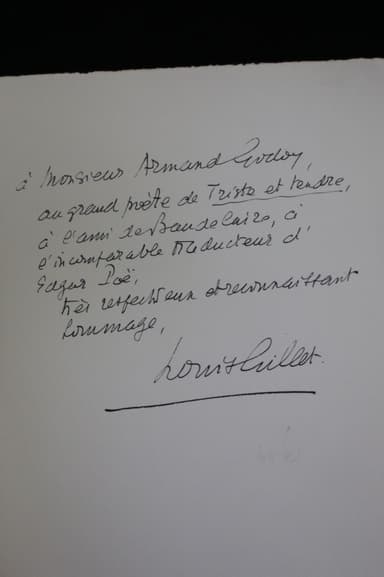 à Monsieur Armand Godoy,
au grand poète de Triste et tendre,
à l'ami de Baudelaire, à
l'incomparable traducteur d'
Edgar Poë,
très respectueux et reconnaissant
hommage,
Louis Gillet.